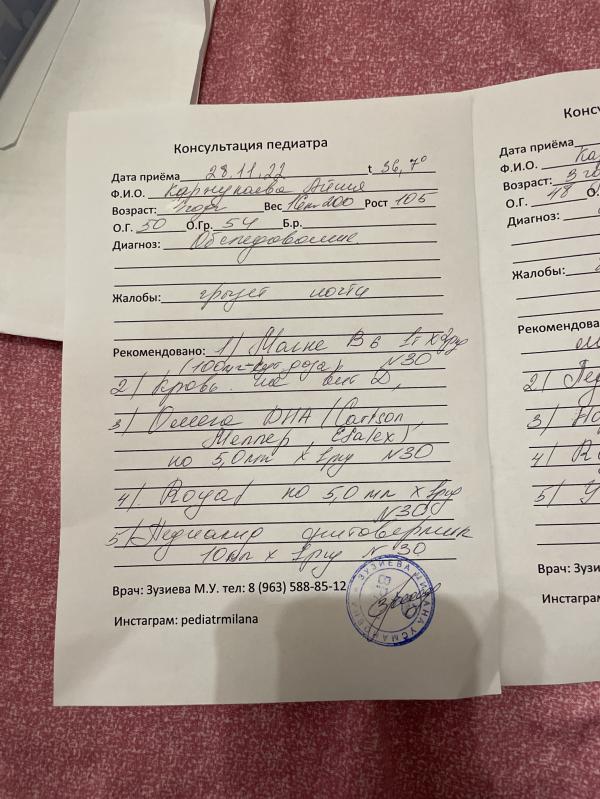 Консультация педиатра
Дата приёма 28.11.22 t 36,7°
Ф.И.О.
Возраст: Вес 16кг200 Рост 105
О.Г. 50 О.Гр. 54 Б.р.
Диагноз: Обследование
Жалобы: грызет ногти
Рекомендовано: 1) Магне В6 1т х
(100мг-сут доза) N30
2) Кровь на вит D,
3) Омега DHA (Carlson,
Меллер, Efalex)
по 5,0мл х N30
4) Royal по 5,0 мл х
N30
5) Педиакид
10мл х N 30
Врач: Зузиева М.У. тел: 8 (963) 588-85-12
Инстаграм: pediatrmilana
ЗУЗИЕВА МИЛАНА УСМАНОВНА
Конс
Дата приёма
Ф.И.О. Ка
Возраст: 3
О.Г. 48
Диагноз:
Жалобы:
Рекомендова
2)
3)
4)
5)
Врач: Зузиев
Инстаграм: